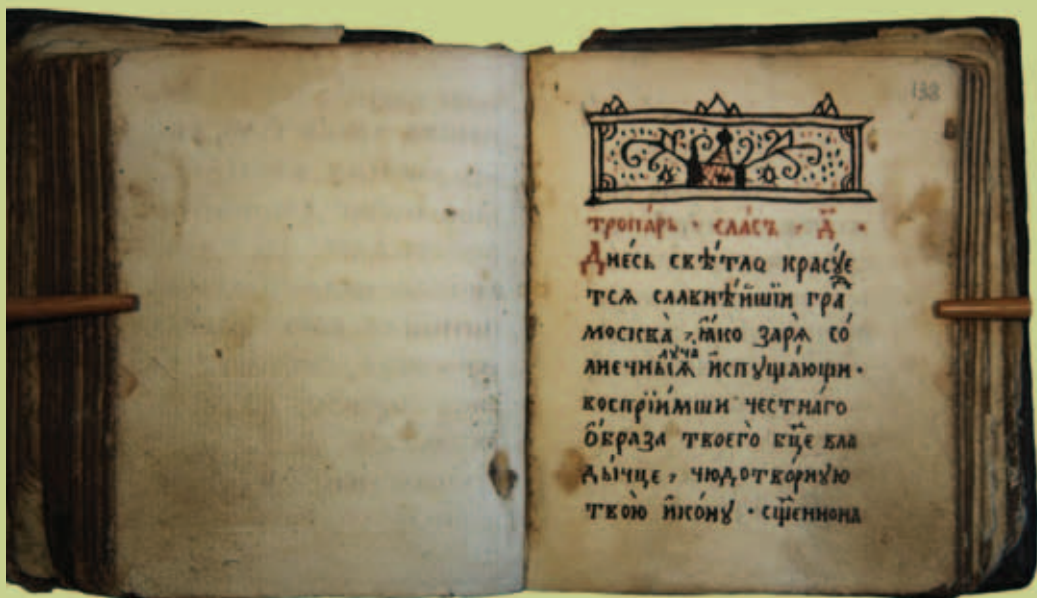 138
тропа́рь · гла́съ · д҃ ·
Дне́сь свѣ́тло красꙋ́е
тсѧ славнѣ́йшїи гра́д
москва̀, ꙗ҆́ко зарѧ̀ со́
лнечныѧ луча и҆спꙋща́ющи ·
воспрїи́мши честна́го
ѻ҆́браза твоего̀ бц҃е вла
ды́чце, чюдотво́рнꙋю
твою̀ и҆ко́нꙋ · сщ҃еннона